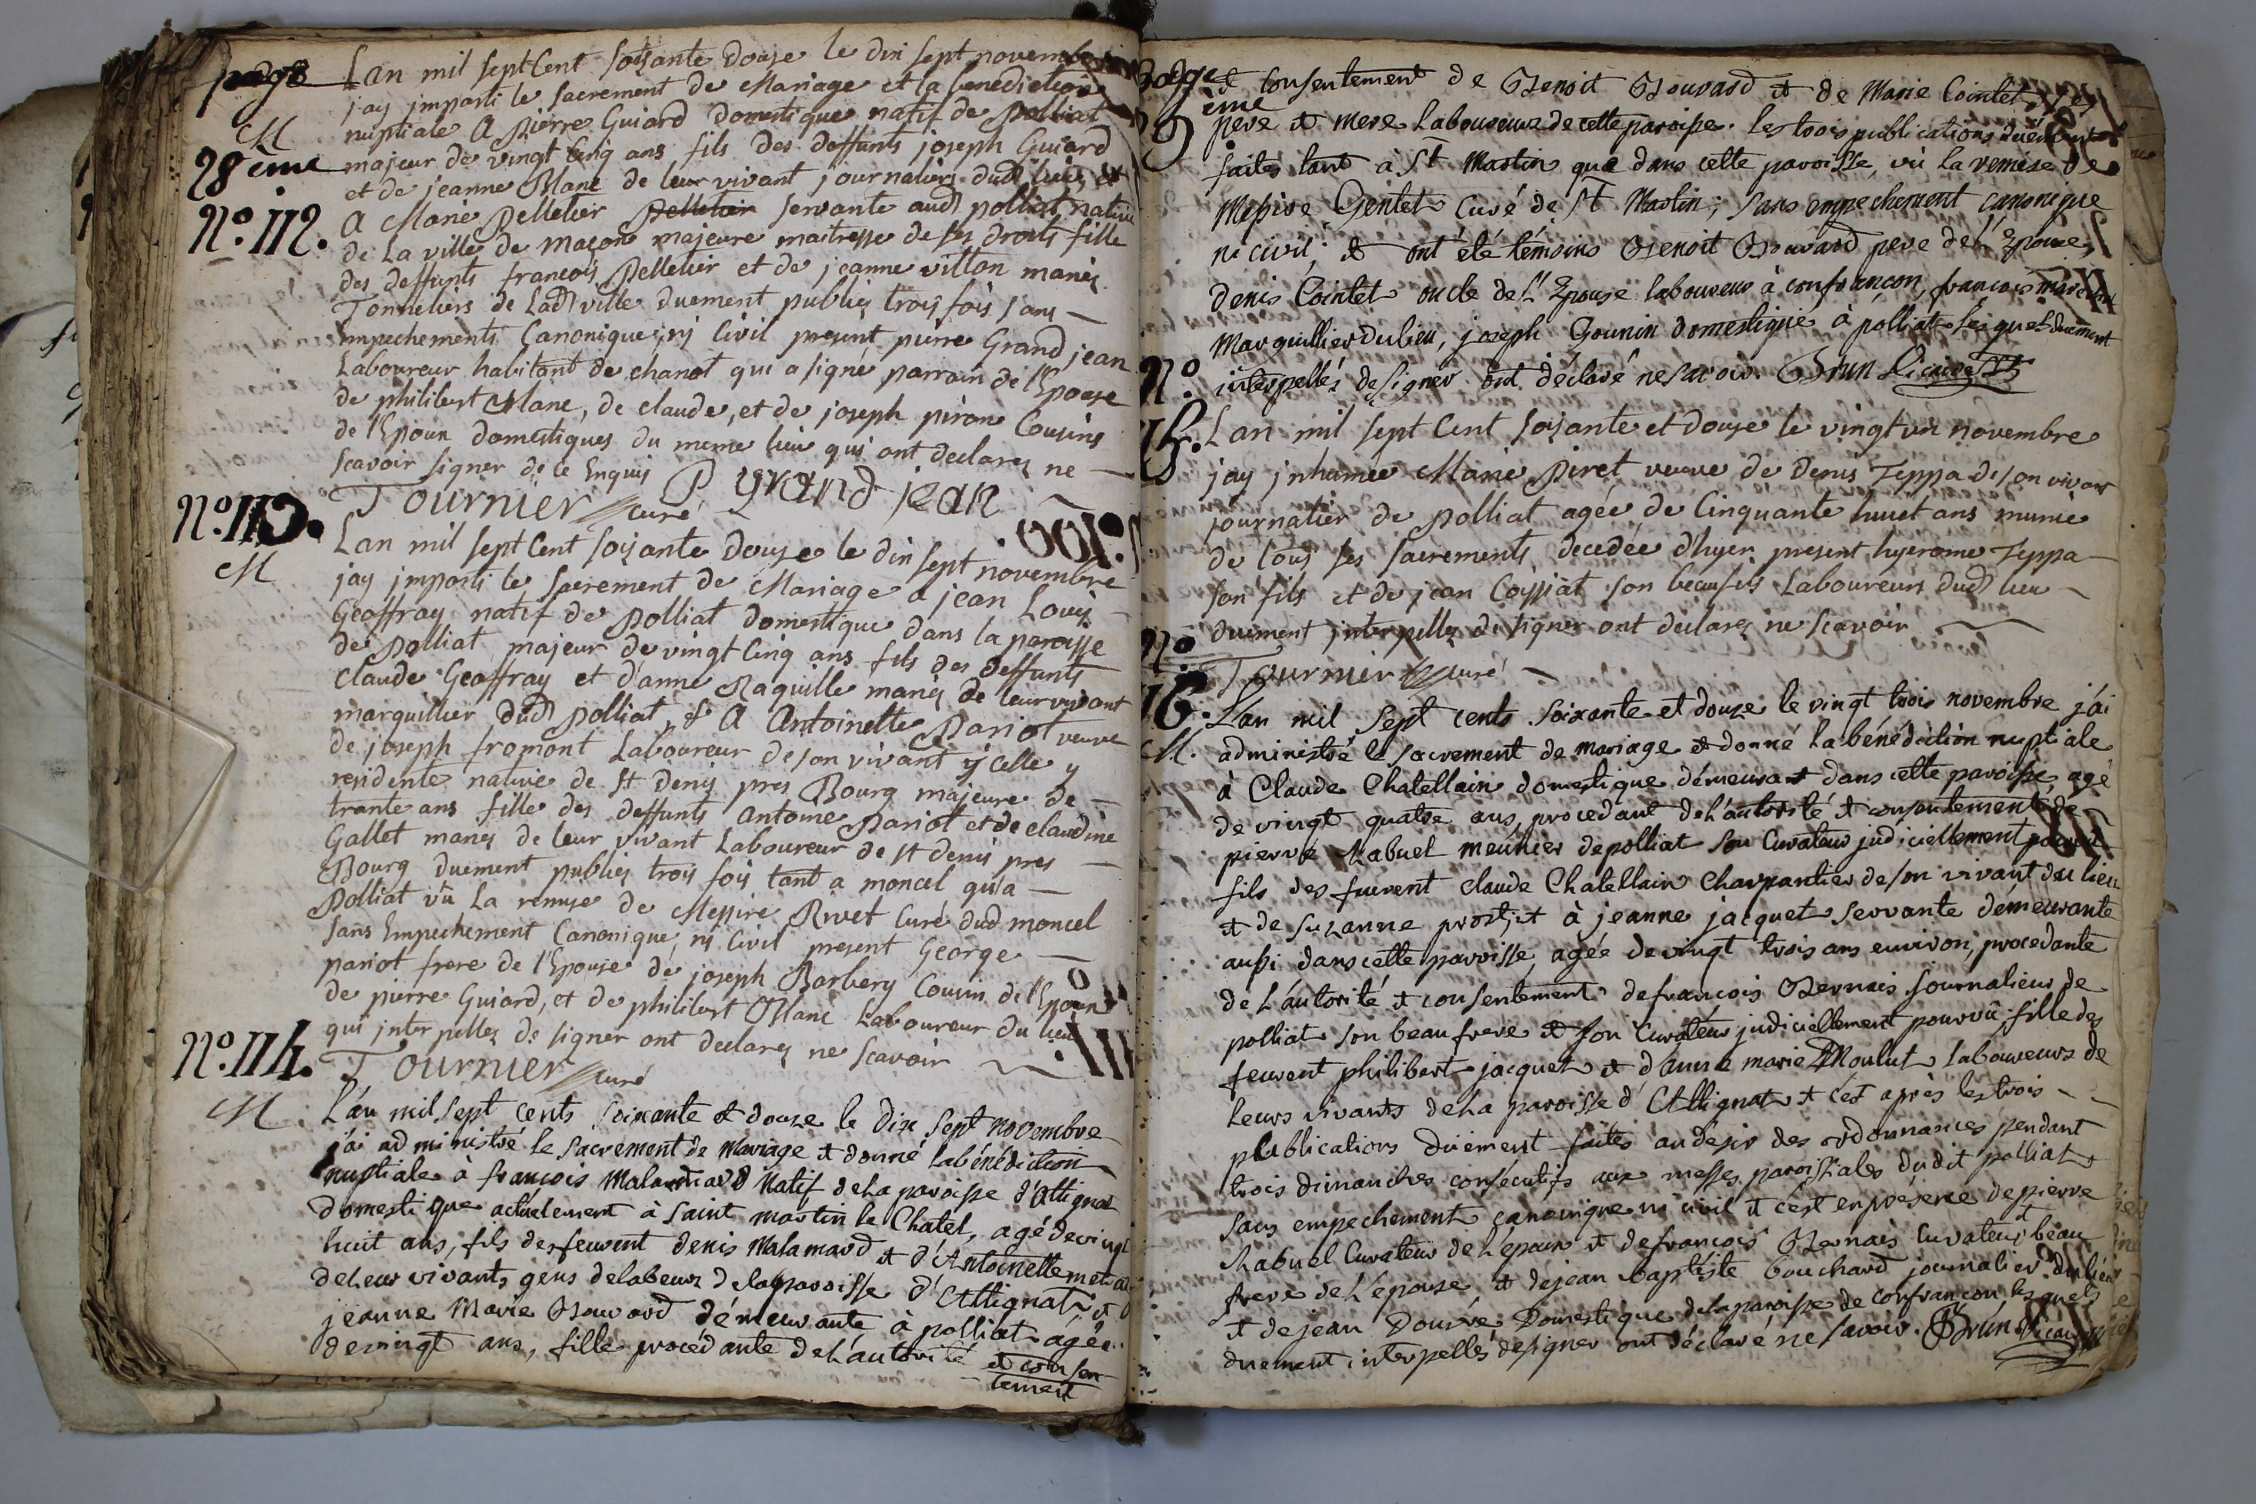 page
28ème
M
No. 112.
Lan mil sept Cent soisante douse le din sept novembre
jay imparti le sacrement de Mariage et la benediction
nuptiale A Pierre Guiard domestique natif de Polliat
majeur de vingt Cinq ans fils des deffunts joseph Guiard
et de jeanne Blanc de leur vivant journaliers dud lieu, et
A Marie Pelletier Pelletier servante aud polliat native
de La ville de maçon majeure maitresse de ses droits fille
des deffunts francois Pelletier et de jeanne villon mariés
Tonneliers de Lad ville duement publiéz trois fois sans
Empechements Canonique, nj Civil present pierre Grand jean
Laboureur habitant de chanot qui a signé parrain de l'Epouse
de philibert Blanc, de claude, et de joseph piron Cousins
de l'Epoux domestiques du meme lieu qui ont declarez ne
scavoir signer de ce Enquis P grand jean
Tournier curé
No. 113.
M
Lan mil sept Cent soisante douse le din sept novembre
jay imparti le sacrement de Mariage a jean Louis
Geoffray natif de Polliat domestique dans la paroisse
de Polliat majeur de vingt Cinq ans fils des deffunts
Claude Geoffray et d'anne Raquille mariéz de leur vivant
marguillier dud Polliat, & A Antoinette Pariot veuve
de joseph fromont Laboureur de son vivant ÿ celle y
residente native de St Denis pres Bourg majeure de
trante ans fille des deffunts antoine Pariot et de claudine
Gallet mariéz de leur vivant Laboureur de St denis pres
Bourg duement publiéz trois fois tant a moncel qu'a
Polliat vû La remise de Messire Rivet Curé dud moncel
sans Empechement Canonique, nj Civil present George
pariot frere de l'Epouse de joseph Barbery Cousin de l'Epoux
de pierre Guiard, et de philibert Blanc Laboureur du lieu
qui interpellez de signer ont declarez ne scavoir
Tournier curé
No. 114.
M
L'an mil sept cents soixante & douze le dix sept novembre
j'ai administré le sacrement de mariage & donné la bénédiction
nuptiale à françois Malamard natif de la paroisse d'Attignat
domestique actuelement à Saint martin le Chatel, agé de vingt
huit ans, fils des feurent denis Malamard & d'Antoinette
de leur vivants gens de labeur de la paroisse d'Attignat &
jeanne Marie Bouvard démeurante à polliat agée
de vingt ans, fille procédante de l'autorité & consen-
tement
page
ème
& consentement de Benoit Bouvard & de Marie Cointet ses
pere & mere Laboureurs de cette paroisse. les trois publications duëment
faites tant à St Martin que dans cette paroisse, vû la remise de
Messire Gentet Curé de St Martin; sans empechement canonique
ni civil, & ont été témoins Benoit Bouvard pere de l'Epouse,
Denis Cointet oncle de l'Epouse laboureur à confrançon, françois
Marguillier du lieu, joseph Gounin domestique à polliat lesquels duëment
interpellés de signer ont déclaré ne savoir. Brun Vicaire
No
115.
Lan mil sept Cent soisante et douse le vingt un novembre
jay inhumée Marie Piret veuve de Denis Teppa de son vivant
journalier de Polliat agée de Cinquante huict ans munie
de tous ses sacrements decedée d'hyer present hyerome Teppa
son fils et de jean Coyssiat son beaufils Laboureurs dud lieu
duement interpellez de signer ont declarez ne scavoir
Tournier curé
No
116.
M.
L'an mil sept cents soixante et douze le vingt trois novembre j'ai
administré le sacrement de mariage & donné la bénédiction nuptiale
à Claude Chatellain domestique démeurant dans cette paroisse, agé
de vingt quatre ans, procedant de l'autorité & consentement de
pierre Rabuel meûnier de polliat son Curateur judiciellement pourvû
fils des fuerent Claude Chatellain Charpantier de son vivant du lieu
& de Suzanne prost, & à jeanne jacquet servante démeurante
aussi dans cette paroisse agée de vingt trois ans environ, procedante
de l'autorité & consentement de françois Bernais journalier de
polliat son beau frere & son Curateur judiciellement pourvû, fille des
feurent philibert jacquet & d'anne marie Moulut laboureurs de
leurs vivants de la paroisse d'Attignat & c'est après les trois
publications duëment faites au désir des ordonnances pendant
trois dimanches consécutifs aux messes paroissiales dudit polliat
sans empechement canonique ni civil & c'est en présence de pierre
Rabuel Curateur de l'époux & de françois Bernais Curateur & beau
frere de l'épouse, & de jean baptiste bouchard journalier du lieu
& de jean Dourré domestique de la paroisse de confrançon, lesquels
duëment interpellés de signer ont déclaré ne savoir. Brun Vicaire